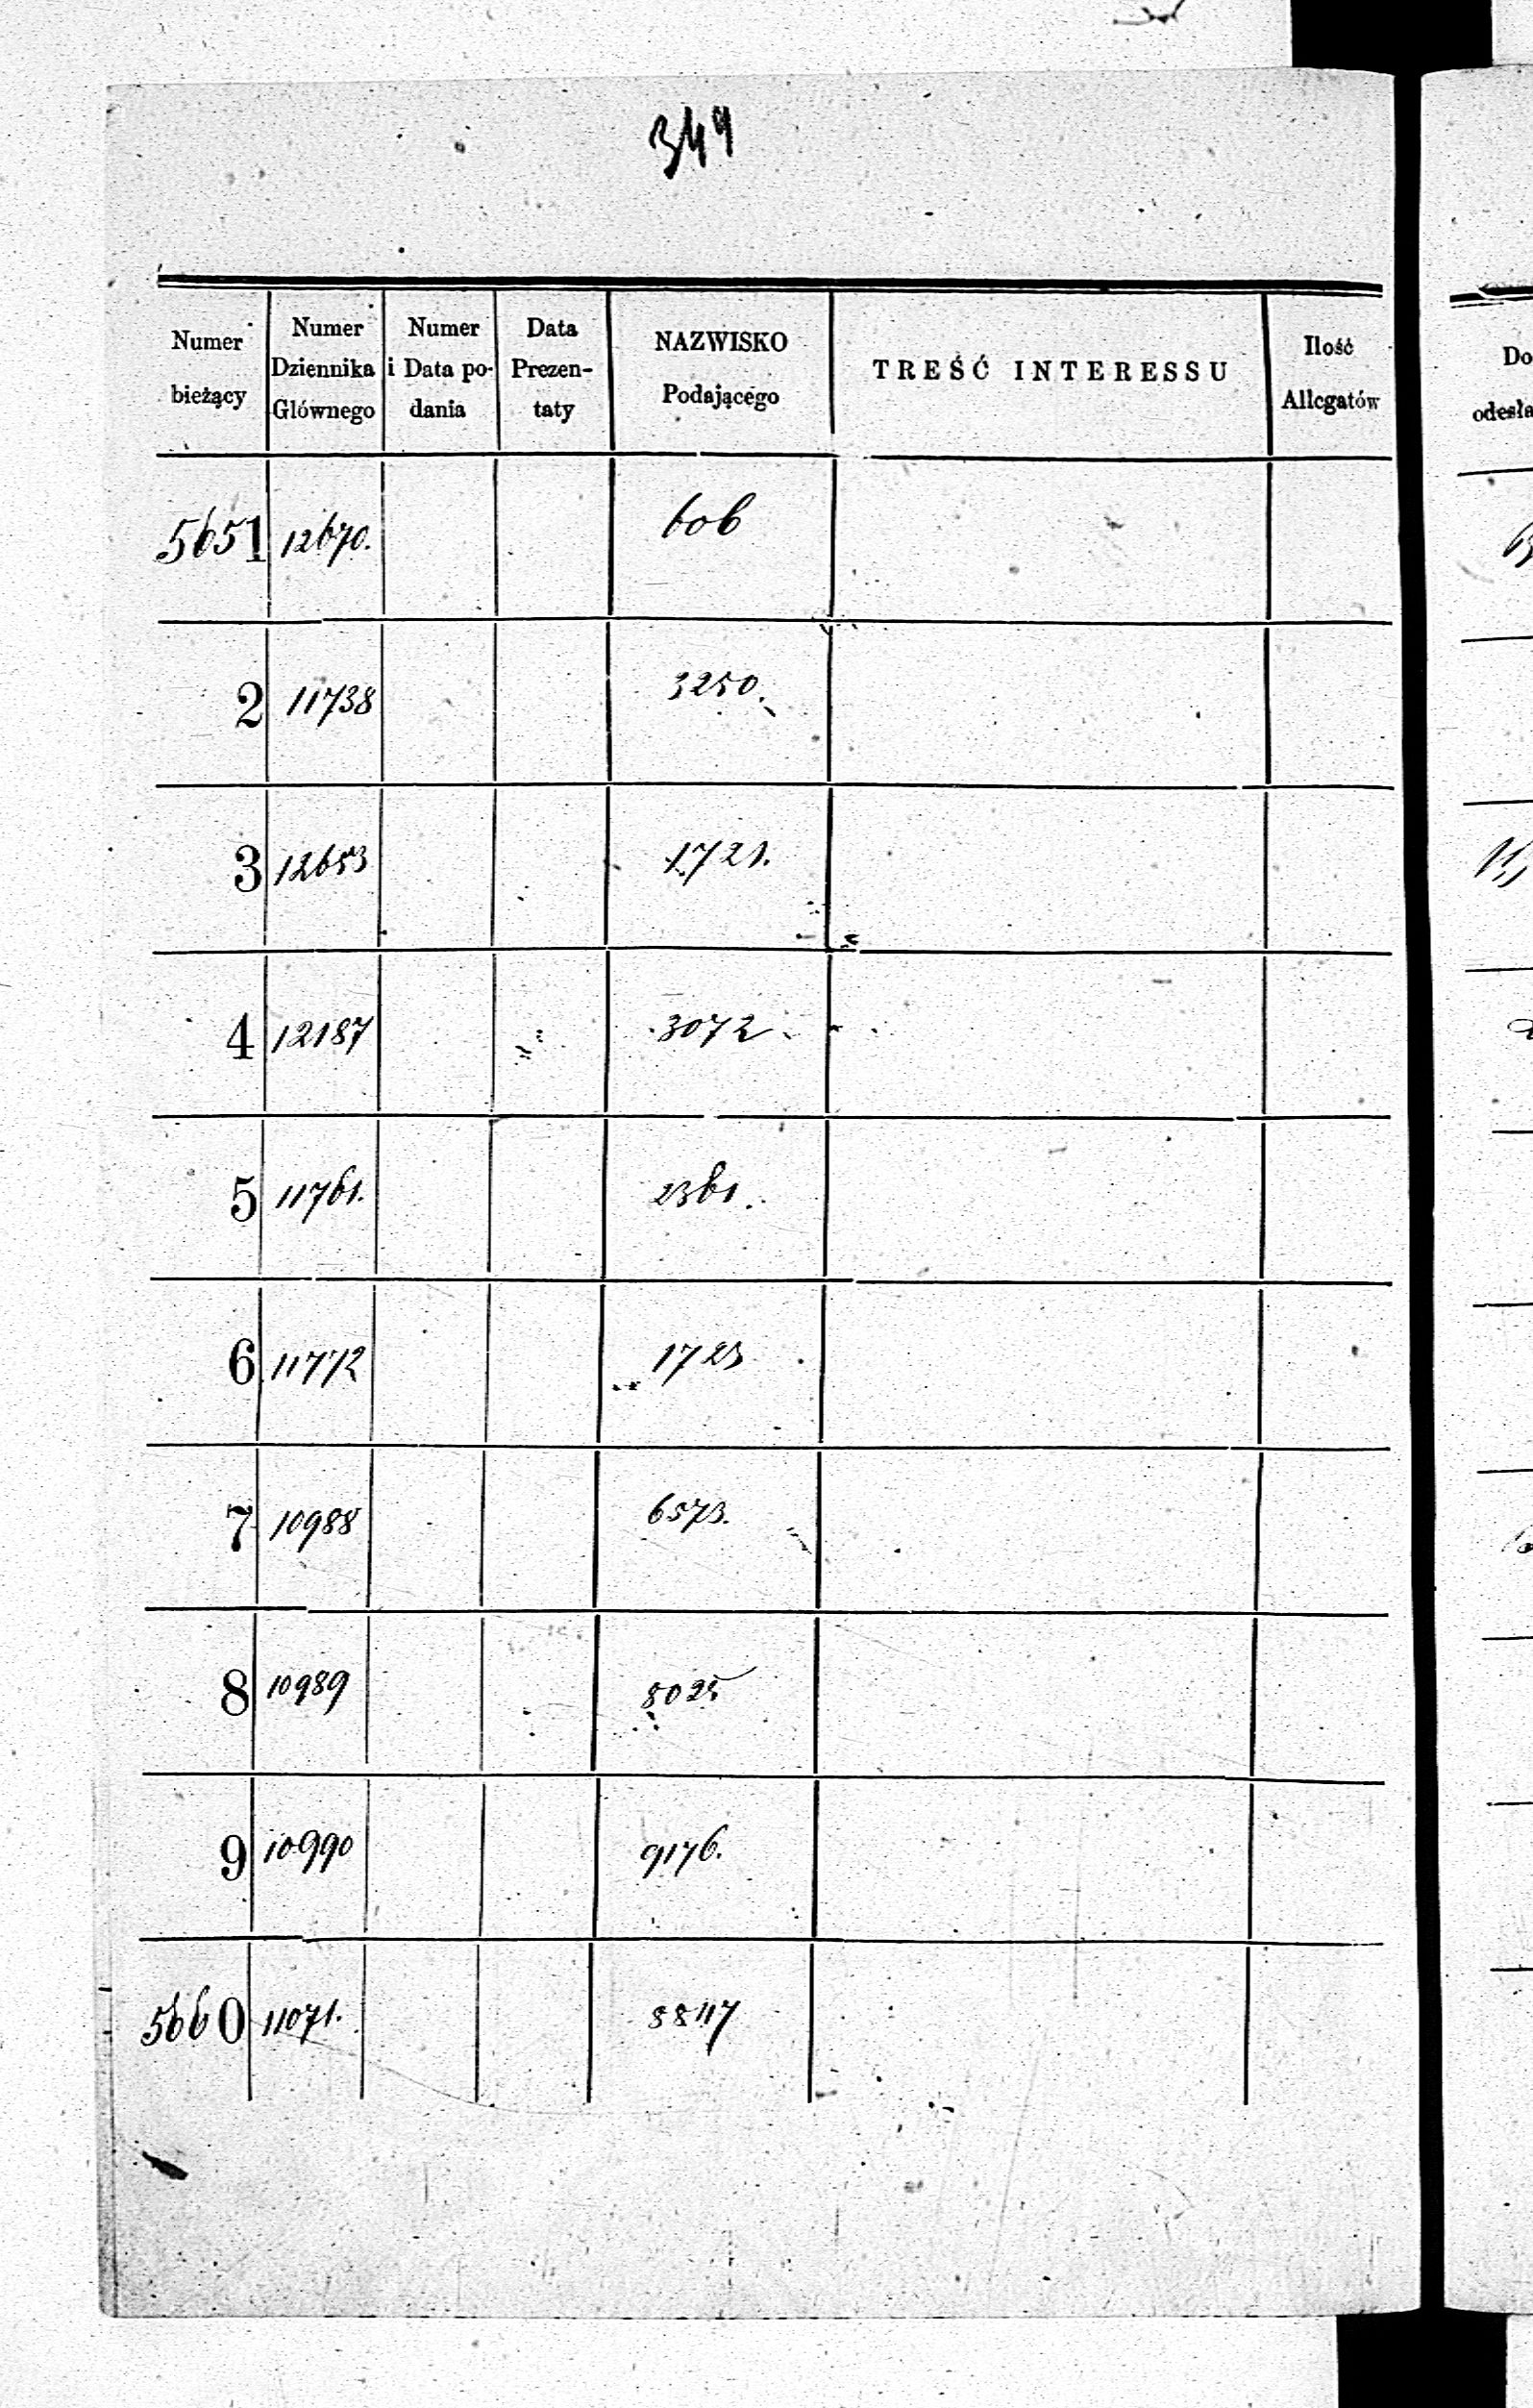 349
Numer bieżący | Numer Dziennika Głównego | Numer i Data podania | Data Prezentaty | NAZWISKO Podającego | TREŚĆ INTERESSU | Ilość Allegatów
5651 12670. 606
2 11738 3250.
3 12653 1721.
4 12187 3072
5 11761. 2361.
6 11772 1723
7 10988 6573.
8 10989 8025
9 10990 9176.
5660 11071. 8847
Do
odesła